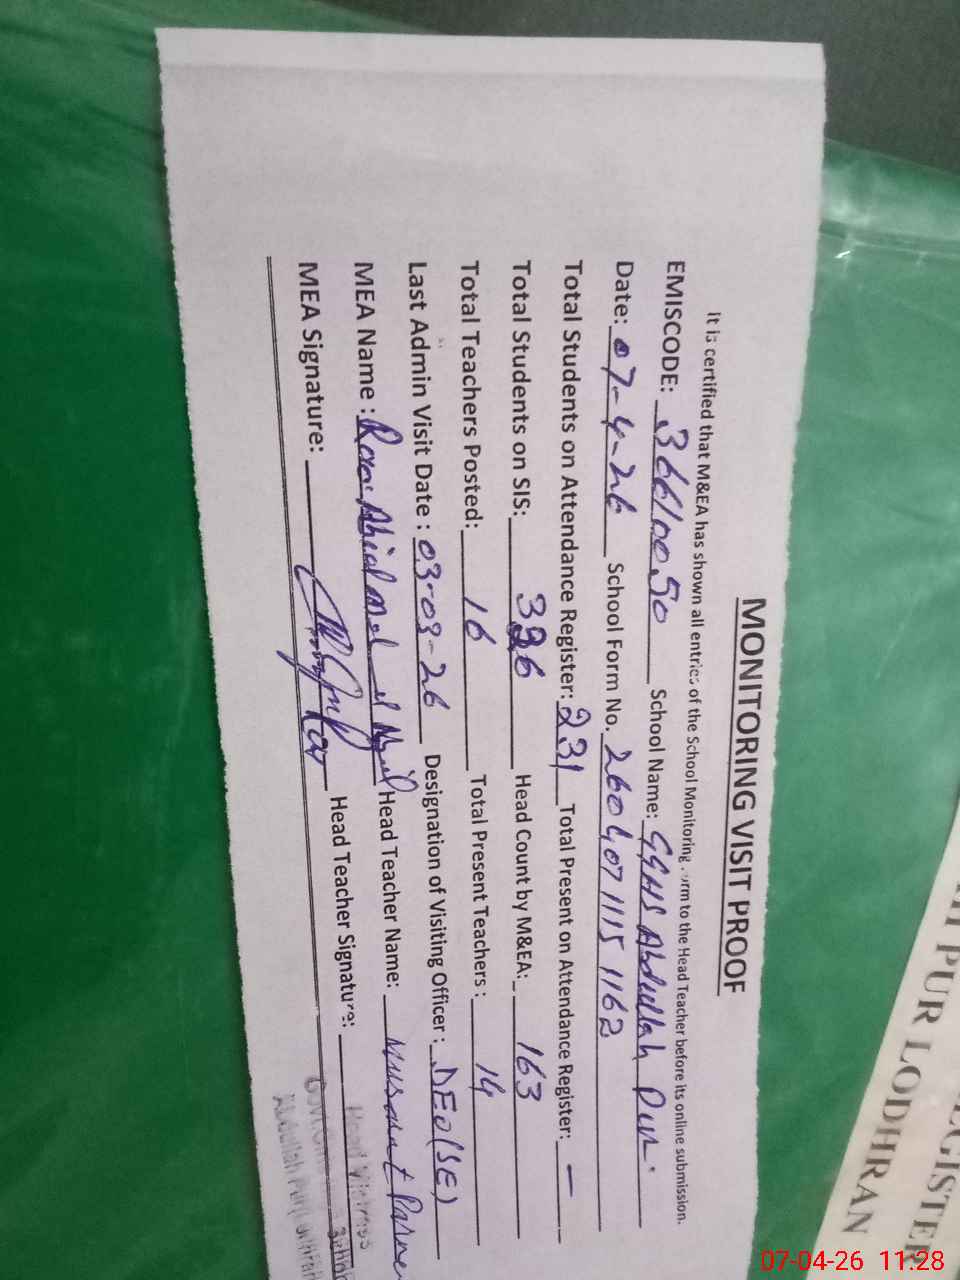 MONITORING VISIT PROOF
It is certified that M&EA has shown all entries of the School Monitoring Form to the Head Teacher before its online submission.
EMISCODE: 36610050 School Name: GGHS Abdullah Pur.
Date: 07-4-26 School Form No. 26040711151162
Total Students on Attendance Register: 231 Total Present on Attendance Register: —
Total Students on SIS: 326 Head Count by M&EA: 163
Total Teachers Posted: 16 Total Present Teachers: 14
Last Admin Visit Date: 03-03-26 Designation of Visiting Officer: DEO(SE)
MEA Name: Rao Head Teacher Name: Musarat
MEA Signature: Head Teacher Signature:
Head Mistress
Govt. School
Abdullah Pur
REGISTER
PUR LODHRAN
07-04-26 11:28